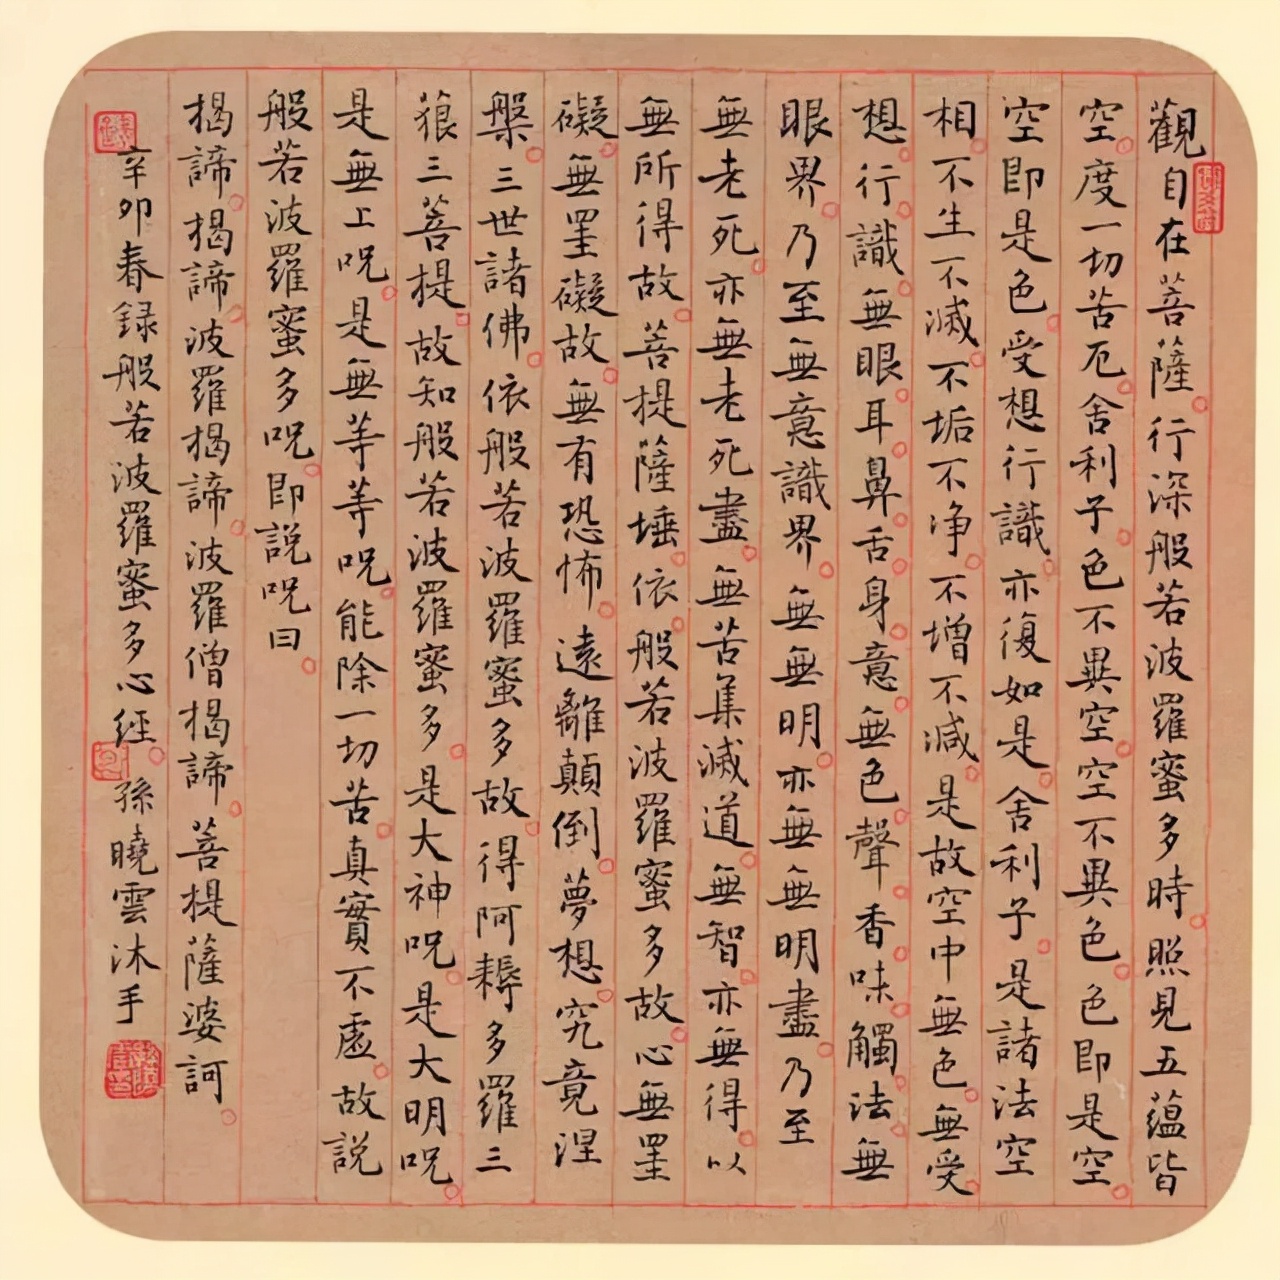 觀自在菩薩行深般若波羅蜜多時照見五蘊皆
空度一切苦厄舍利子色不異空空不異色色即是空
空即是色受想行識亦復如是舍利子是諸法空
相不生不滅不垢不净不增不減是故空中無色無受
想行識無眼耳鼻舌身意無色聲香味觸法無
眼界乃至無意識界無無明亦無無明盡乃至
無老死亦無老死盡無苦集滅道無智亦無得以
無所得故菩提薩埵依般若波羅蜜多故心無罣
礙無罣礙故無有恐怖遠離顛倒夢想究竟涅
槃三世諸佛依般若波羅蜜多故得阿耨多羅三
藐三菩提故知般若波羅蜜多是大神呪是大明呪
是無上呪是無等等呪能除一切苦真實不虛故説
般若波羅蜜多呪即説呪曰
揭諦揭諦波羅揭諦波羅僧揭諦菩提薩婆訶
辛卯春録般若波羅蜜多心經孫曉雲沐手